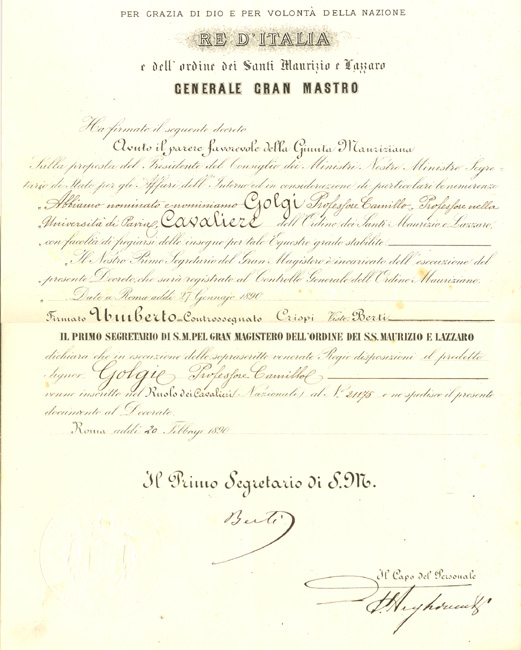 PER GRAZIA DI DIO E PER VOLONTÀ DELLA NAZIONE
RE D'ITALIA
e dell'ordine dei Santi Maurizio e Lazzaro
GENERALE GRAN MASTRO
Ha firmato il seguente decreto
Avuto il parere favorevole della Giunta Mauriziana
Sulla proposta del Presidente del Consiglio dei Ministri Nostro Ministro Segre-
tario di Stato per gli Affari dell'Interno ed in considerazione di particolari benemerenze
Abbiamo nominato e nominiamo Golgi Professore Camillo, Professore nella
Università di Pavia, Cavaliere dell'Ordine dei Santi Maurizio e Lazzaro,
con facoltà di fregiarsi delle insegne per tale Equestre grado stabilite
Il Nostro Primo Segretario del Gran Magistero è incaricato dell'esecuzione del
presente Decreto, che sarà registrato al Controllo Generale dell'Ordine Mauriziano.
Dato a Roma addì 17 Gennajo 1890
Firmato Umberto Controssegnato Crispi Visto Berti
IL PRIMO SEGRETARIO DI S.M. PEL GRAN MAGISTERO DELL'ORDINE DEI S.S. MAURIZIO E LAZZARO
dichiara che in esecuzione delle soprascritte venerate Regie disposizioni il predetto
Signor Golgi Professore Camillo
venne inscritto nel Ruolo dei Cavalieri (Nazionali) al N.° 21175 e ne spedisce il presente
documento al Decorato.
Roma addì 20 Febbrajo 1890
Il Primo Segretario di S.M.
Berti
Il Capo del Personale